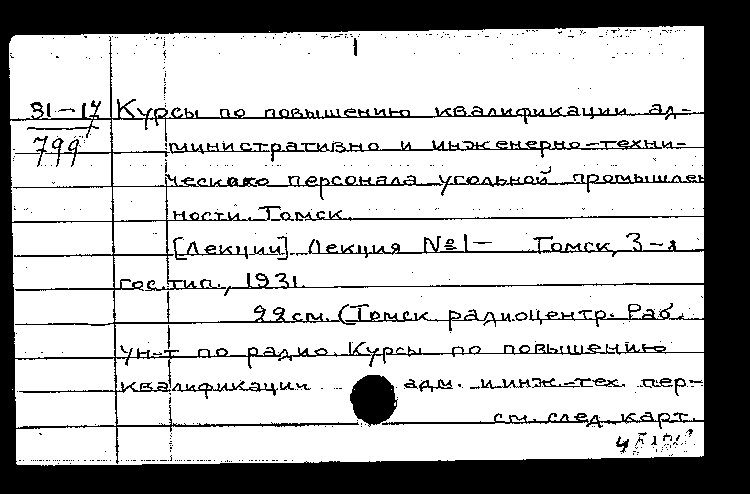 31-17 Курсы по повышению квалификации ад-
799 министративно и инженерно-техни-
ческого персонала угольной промышлен
ности. Томск.
[Лекции] Лекция №1- Томск, 3-я
гос.тип., 1931.
22см. (Томск. радиоцентр. Раб.
ун-т по радио. Курсы по повышению
квалификации адм. и инж.-тех. пер-
см. след. карт.